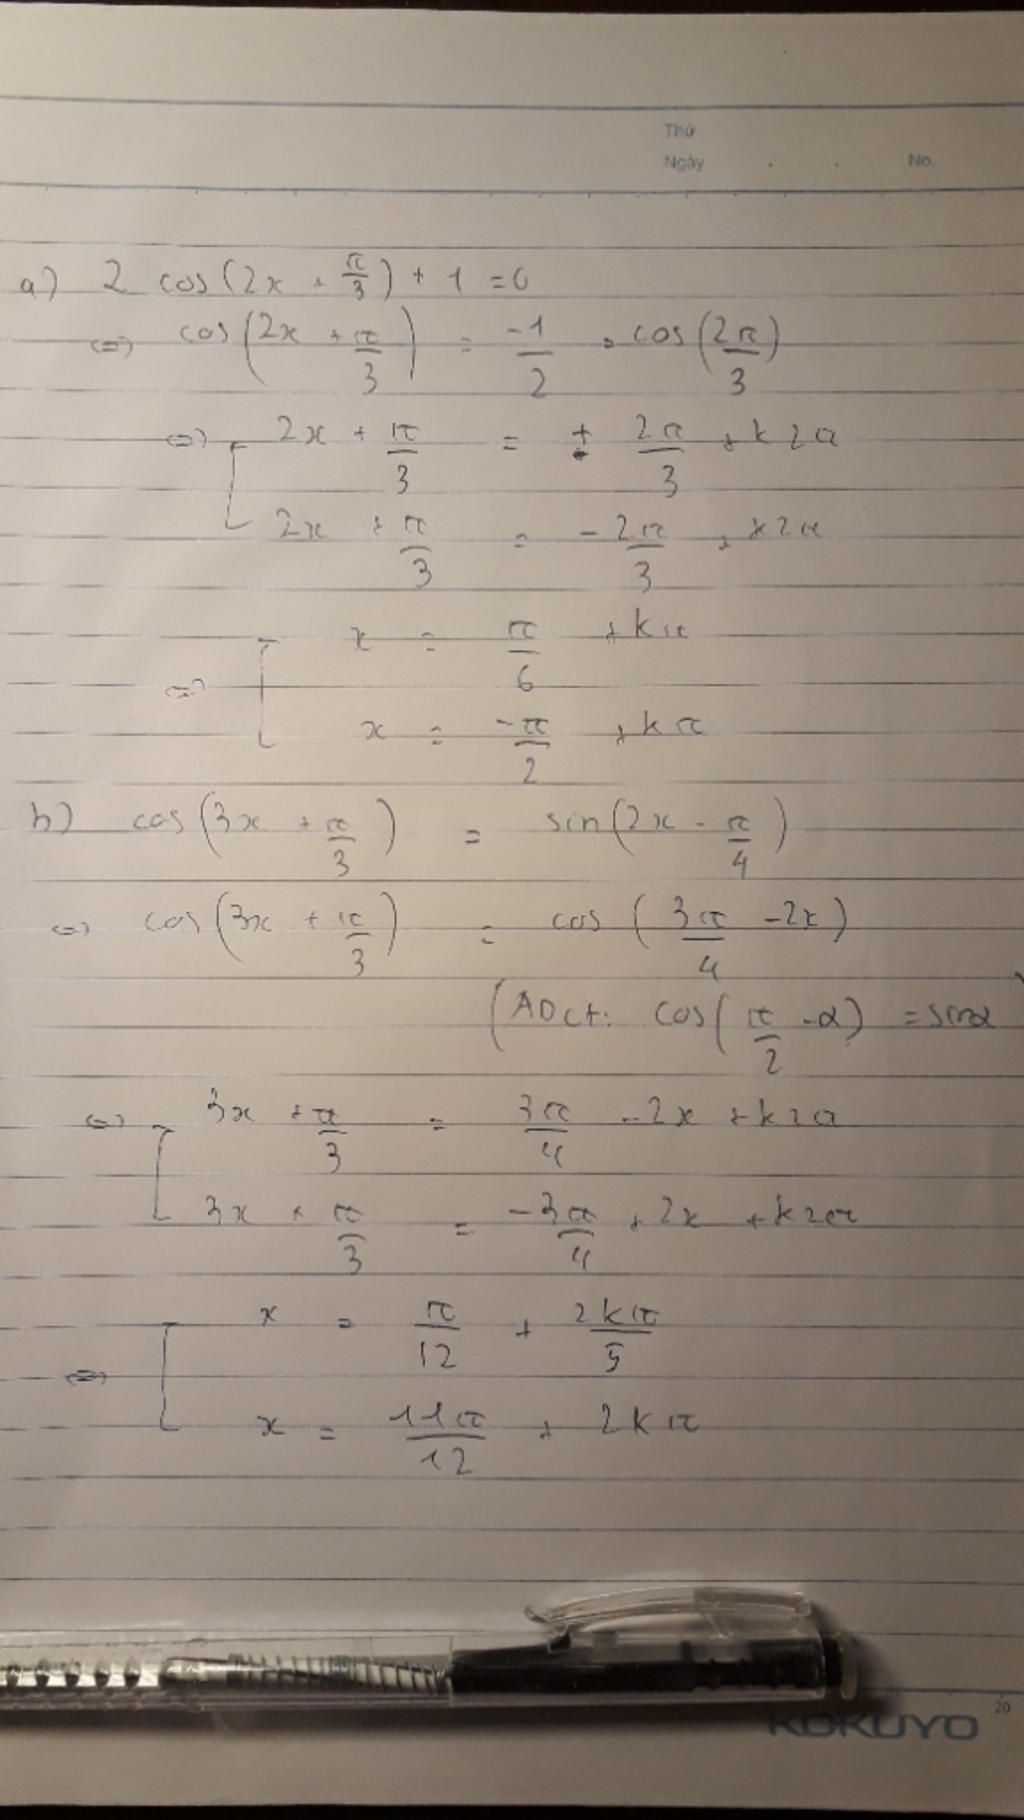 Thứ
Ngày . . No.
a) 2 cos(2x + π/3) + 1 = 0
⇔ cos(2x + π/3) = -1/2 = cos(2π/3)
⇔ [ 2x + π/3 = + 2π/3 + k2π
2x + π/3 = -2π/3 + k2π
⇔ [ x = π/6 + kπ
x = -π/2 + kπ
b) cos(3x + π/3) = sin(2x - π/4)
⇔ cos(3x + π/3) = cos(3π/4 - 2x)
(ADct: cos(π/2 - α) = sinα
⇔ [ 3x + π/3 = 3π/4 - 2x + k2π
3x + π/3 = -3π/4 + 2x + k2π
⇔ [ x = π/12 + 2kπ/5
x = 11π/12 + 2kπ
20
KOKUYO